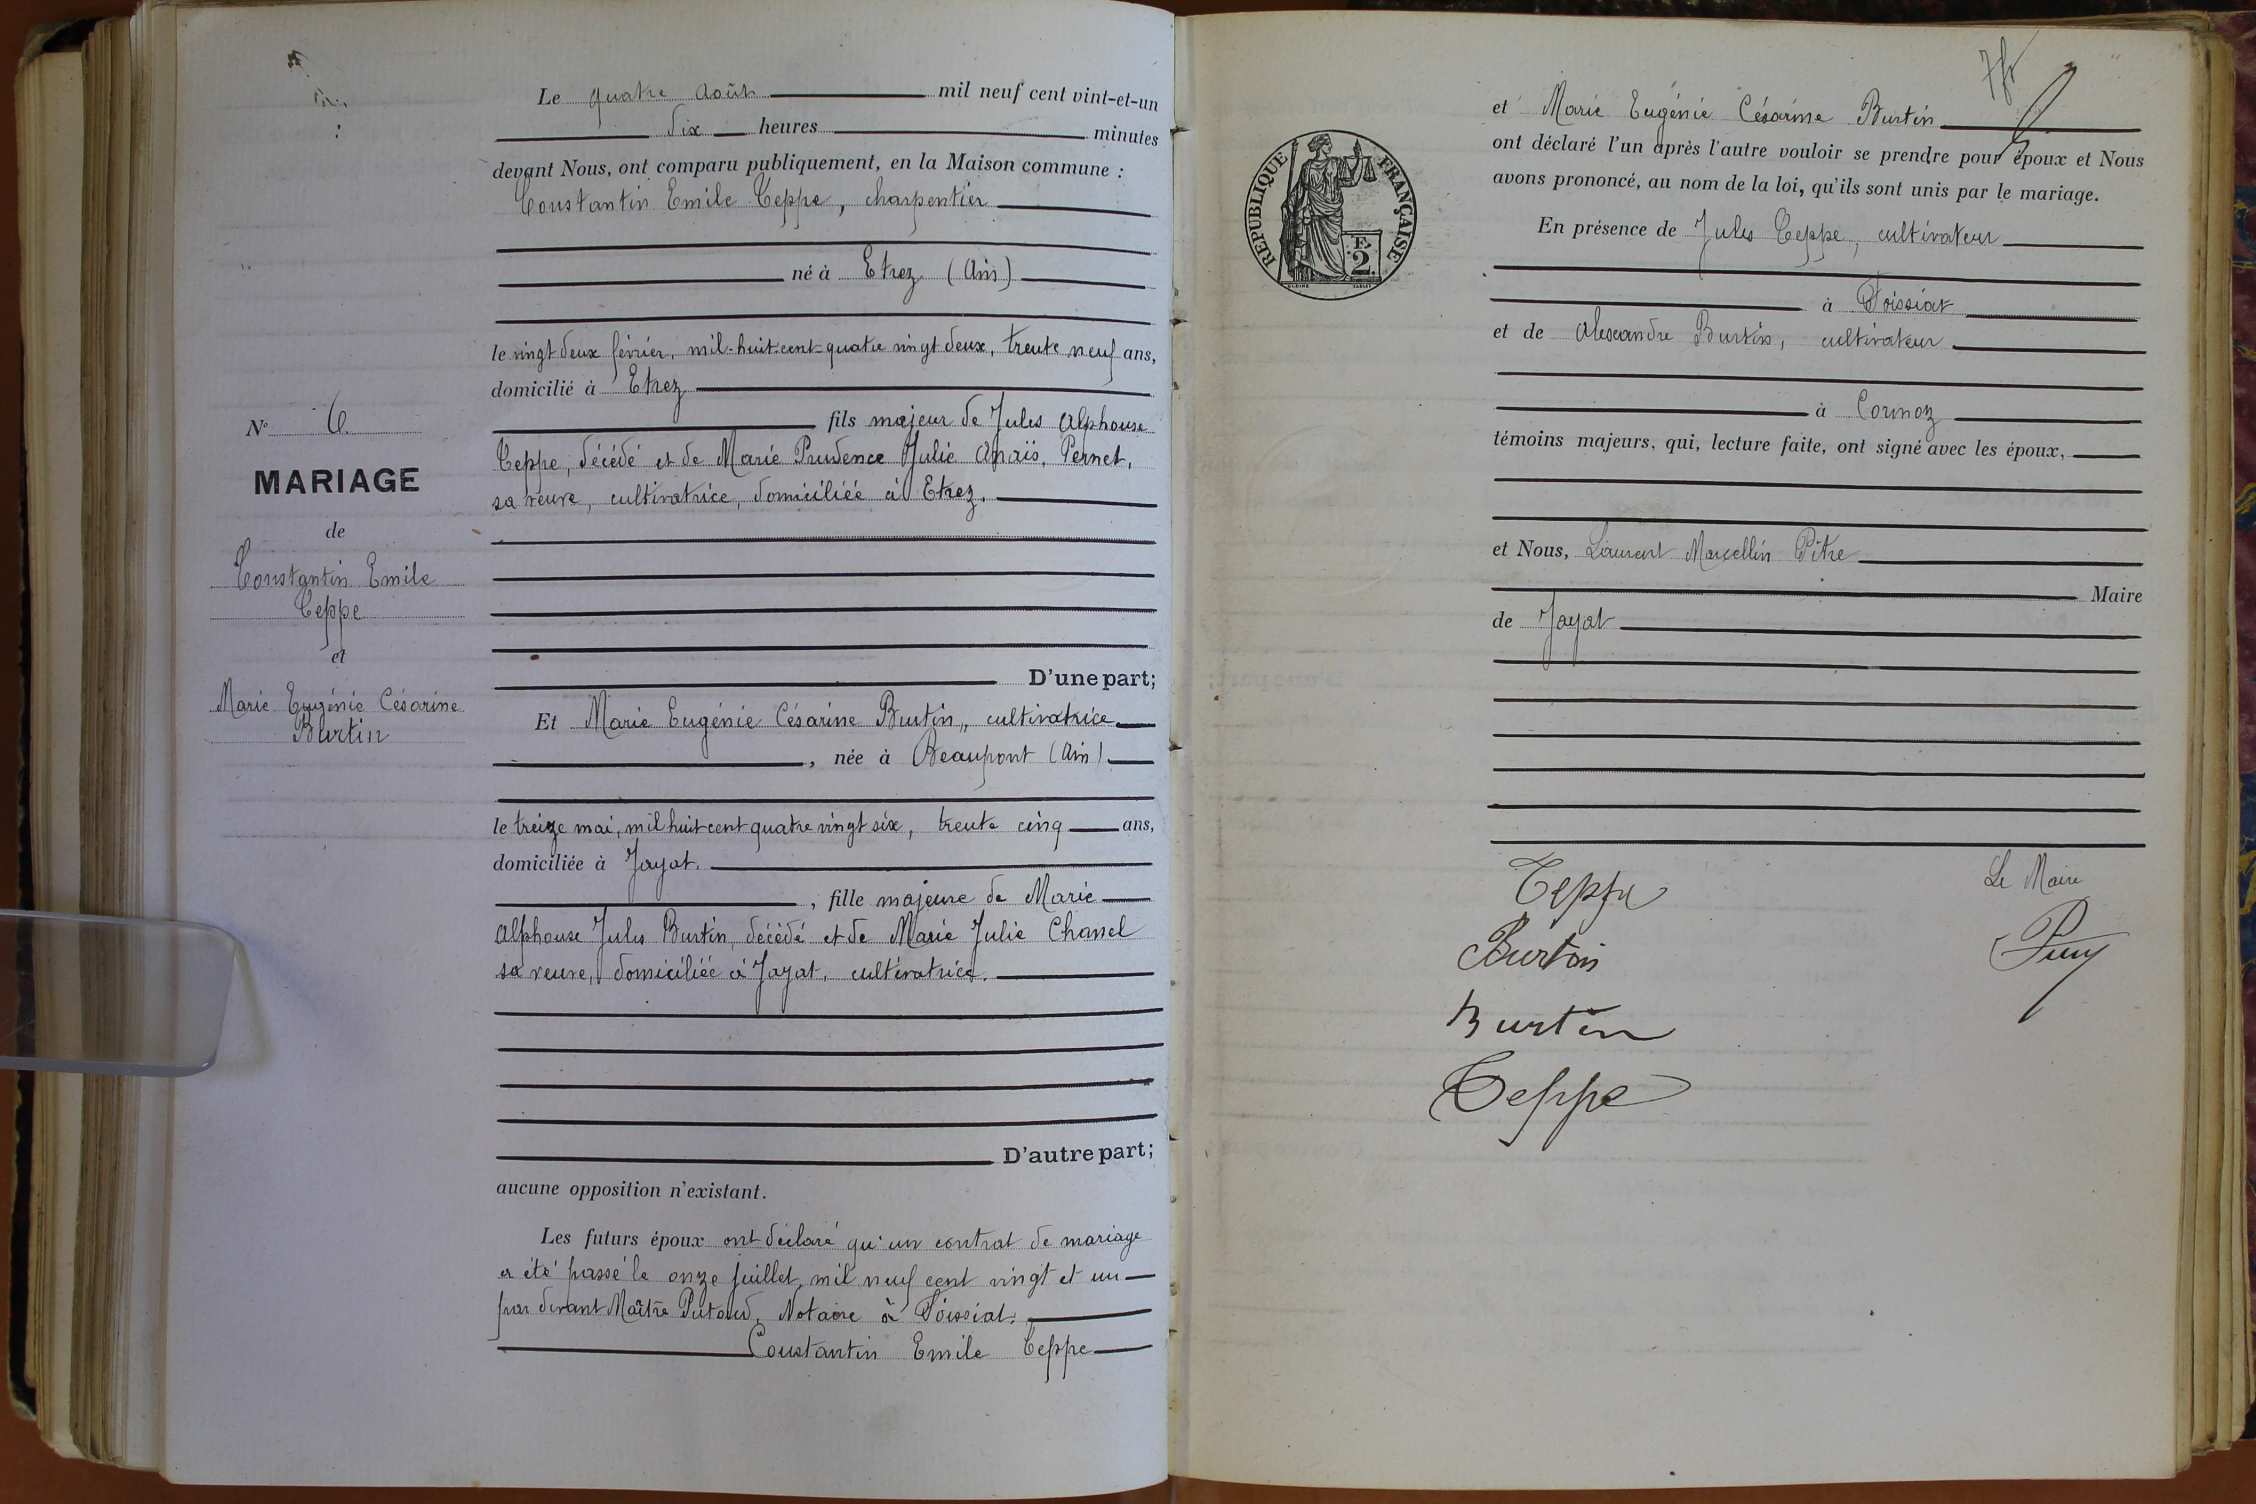 Le quatre Août mil neuf cent vint-et-un
dix heures minutes
devant Nous, ont comparu publiquement, en la Maison commune :
Constantin Emile Teppe, charpentier
né à Etrez (Ain)
le vingt deux février, mil-huit cent-quatre vingt deux, trente neuf ans,
domicilié à Etrez
fils majeur de Jules Alphonse
Teppe, décédé et de Marie Prudence Julie Anaïs, Pernet,
sa veuve, cultivatrice, domiciliée à Etrez.
D'une part;
Et Marie Eugénie Césarine Burtin, cultivatrice
, née à Beaupont (Ain)
le treize mai, mil huit cent quatre vingt six, trente cinq ans,
domiciliée à Jayat.
, fille majeure de Marie
Alphonse Jules Burtin, décédé et de Marie Julie Chanel
sa veuve, domiciliée à Jayat, cultivatrice.
D'autre part;
aucune opposition n'existant.
Les futurs époux ont déclaré qu'un contrat de mariage
a été passé le onze juillet, mil neuf cent vingt et un
par devant Maître Notaire à Foissiat.
Constantin Emile Teppe
No 6
MARIAGE
de
Constantin Emile
Teppe
et
Marie Eugénie Césarine
Burtin
7 fr
et Marie Eugénie Césarine Burtin
ont déclaré l'un après l'autre vouloir se prendre pour époux et Nous
avons prononcé, au nom de la loi, qu'ils sont unis par le mariage.
En présence de Jules Teppe, cultivateur
à Foissiat
et de Alexandre Burtin, cultivateur
à Cormoz
témoins majeurs, qui, lecture faite, ont signé avec les époux,
et Nous, Laurent Marcellin Pitre
Maire
de Jayat
RÉPUBLIQUE FRANÇAISE
F.
2
Teppe
Burtin
Burtin
Teppe
Le Maire